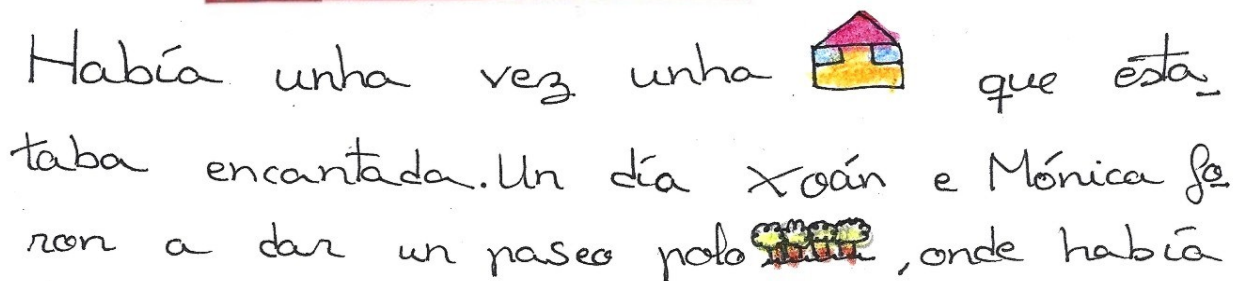 Había unha vez unha que esta_
taba encantada. Un día Xoán e Mónica fo
ron a dar un paseo polo , onde había